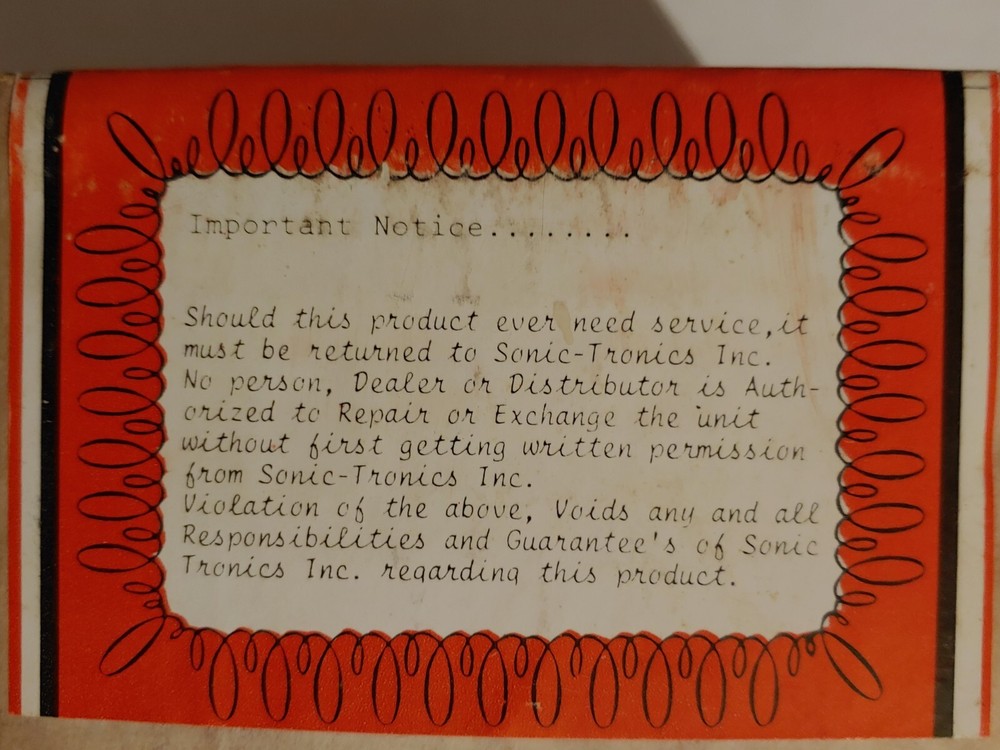 Important Notice........
Should this product ever need service,it
must be returned to Sonic-Tronics Inc.
No person, Dealer or Distributor is Auth-
orized to Repair or Exchange the unit
without first getting written permission
from Sonic-Tronics Inc.
Violation of the above, Voids any and all
Responsibilities and Guarantee's of Sonic
Tronics Inc. regarding this product.